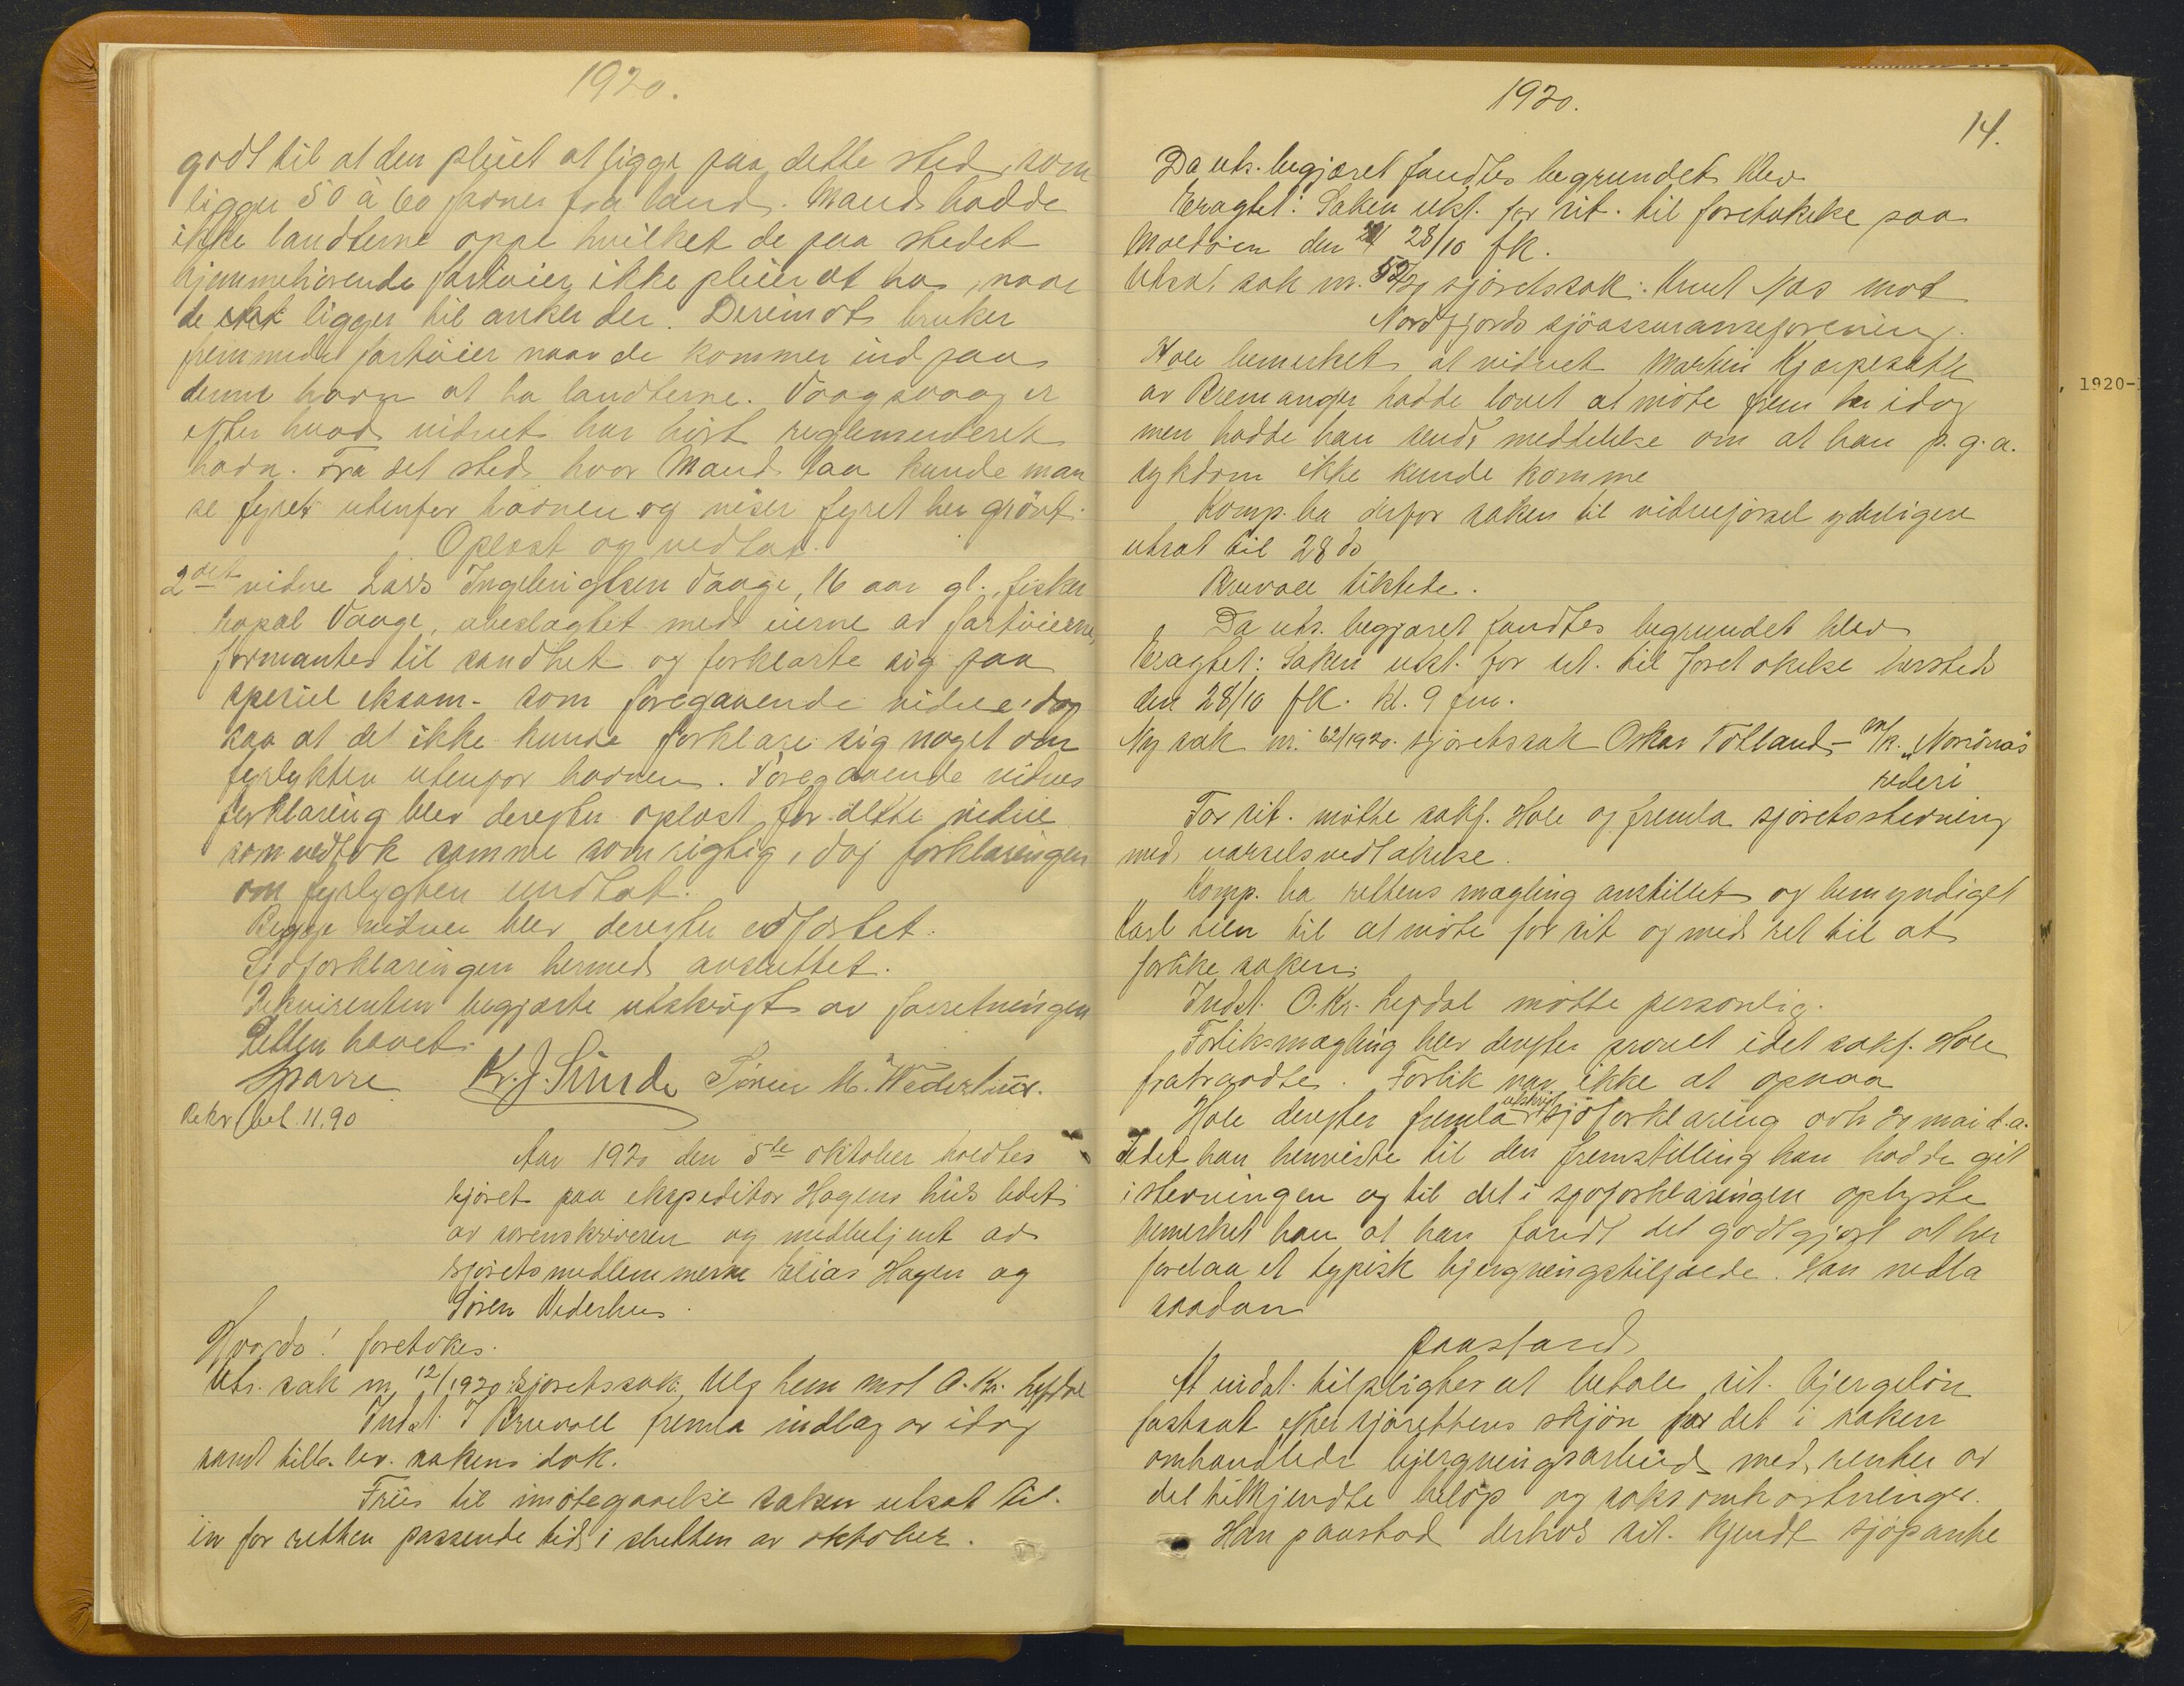 1920.
godt til at den pleiet at ligge paa dette sted, som
ligger 50 à 60 favner fra land. Maud hadde
ikke landterne oppe hvilket de paa stedet
hjemmehørende fartøier ikke pleier at ha, naar
de ligger til anker der. Derimot bruker
fremmede fartøier naar de kommer ind paa
denne havn at ha landterne. Vaagsvaag er
efter hvad vidnet har hørt reglementeret
havn. Fra det sted hvor Maud laa kunde man
se fyret utenfor havnen og viser fyret her grønt.
Oplæst og vedtat.
2det vidne Lars Ingebrigtsen Vaage, 16 aar gl., fisker
bopæl Vaage, ubeslægtet med eierne av fartøierne,
formantes til sandhet og forklarte sig paa
speciel eksam. som foregaaende vidne, dog
saa at det ikke kunde forklare sig noget om
fyrlykten utenfor havnen. Foregaaende vidnes
forklaring blev derefter oplæst for dette vidne
som vedtok samme som rigtig, dog forklaringen
om fyrlygten undtat.
Begge vidner blev derefter edfæstet.
Sjøforklaringen hermed avsluttet.
Rekvirenten begjærte utskrift av forretningen
Retten hævet.
Sparre Kr. J. Sunde Søren M. Wederhus.
Rekv. bet. 11.90
Aar 1920 den 5te oktober holdtes
sjøret paa ekspeditør Hagens hus ledet
av sorenskriveren og medbetjent av
sjøretsmedlemmerne Elias Hagen og
Søren Vederhus.
Hvorda! foretokes.
Uts. sak nr. 12/1920: sjøretssak, Uls hem mot O. Kr. Hefdal
Indst. I Bruvoll fremla indlæg av idag
samt tilb. lev. sakens dok.
Friis til imøtegaaelse saken utsat til
en for retten passende tid i slutten av oktober.
1920.
14.
Da uts. begjæret fandtes begrundet blev
Eragtet: Saken utst. for cit. til foretakelse paa
Moldøen den 28/10 fk.
Utsat sak nr. 52/20 sjøretssak: Knut Nas mot
Nordfjords sjøassuranseforening.
Hole bemerket at vidnet Martin Kjerpesæth
av Bremanger hadde lovet at møte frem her idag
men hadde han sendt meddelelse om at han p.g.a.
sykdom ikke kunde komme
Komp. ba derfor saken til vidneførsel yderligere
utsat til 28 ds
Bruvoll tiltrede.
Da uts. begjæret fandtes begrundet blev
Eragtet: Saken utst. for cit. til foretakelse hersted
den 28/10 fk. kl. 9 fm.
Ny sak nr. 62/1920. sjøretssak Oskar Totland - m/k. "Norønas"
rederi
For cit. møtte sakf. Hole og fremla sjøretsstevning
med varselsvedtakelse.
Komp. ba rettens mægling anstillet og bemyndiget
til at møte for cit og med ret til at
forlike saken.
Indst. O. Kr. Hefdal møtte personlig.
Forliksmægling blev derefter prøvet idet sakf. Hole
fratraadte. Forlik var ikke at opnaa
Hole derefter fremla utskrift sjøforklaring avh. 20 mai d.a.
Idet han henviste til den fremstilling han hadde git
i stevningen og til det i sjøforklaringen oplyste
bemerket han at han fandt det godtgjort at her
forelaa et typisk bjergningstilfælde. Han nedla
saadan
paastand
At indst. tilpligtes at betale cit. bjergeløn
fastsat efter sjørettens skjøn for det i saken
omhandlede bjergningsarbeid med renter av
det tilkjendte beløp og saksomkostninger.
Han paastod derhos cit. kjendt sjøpante